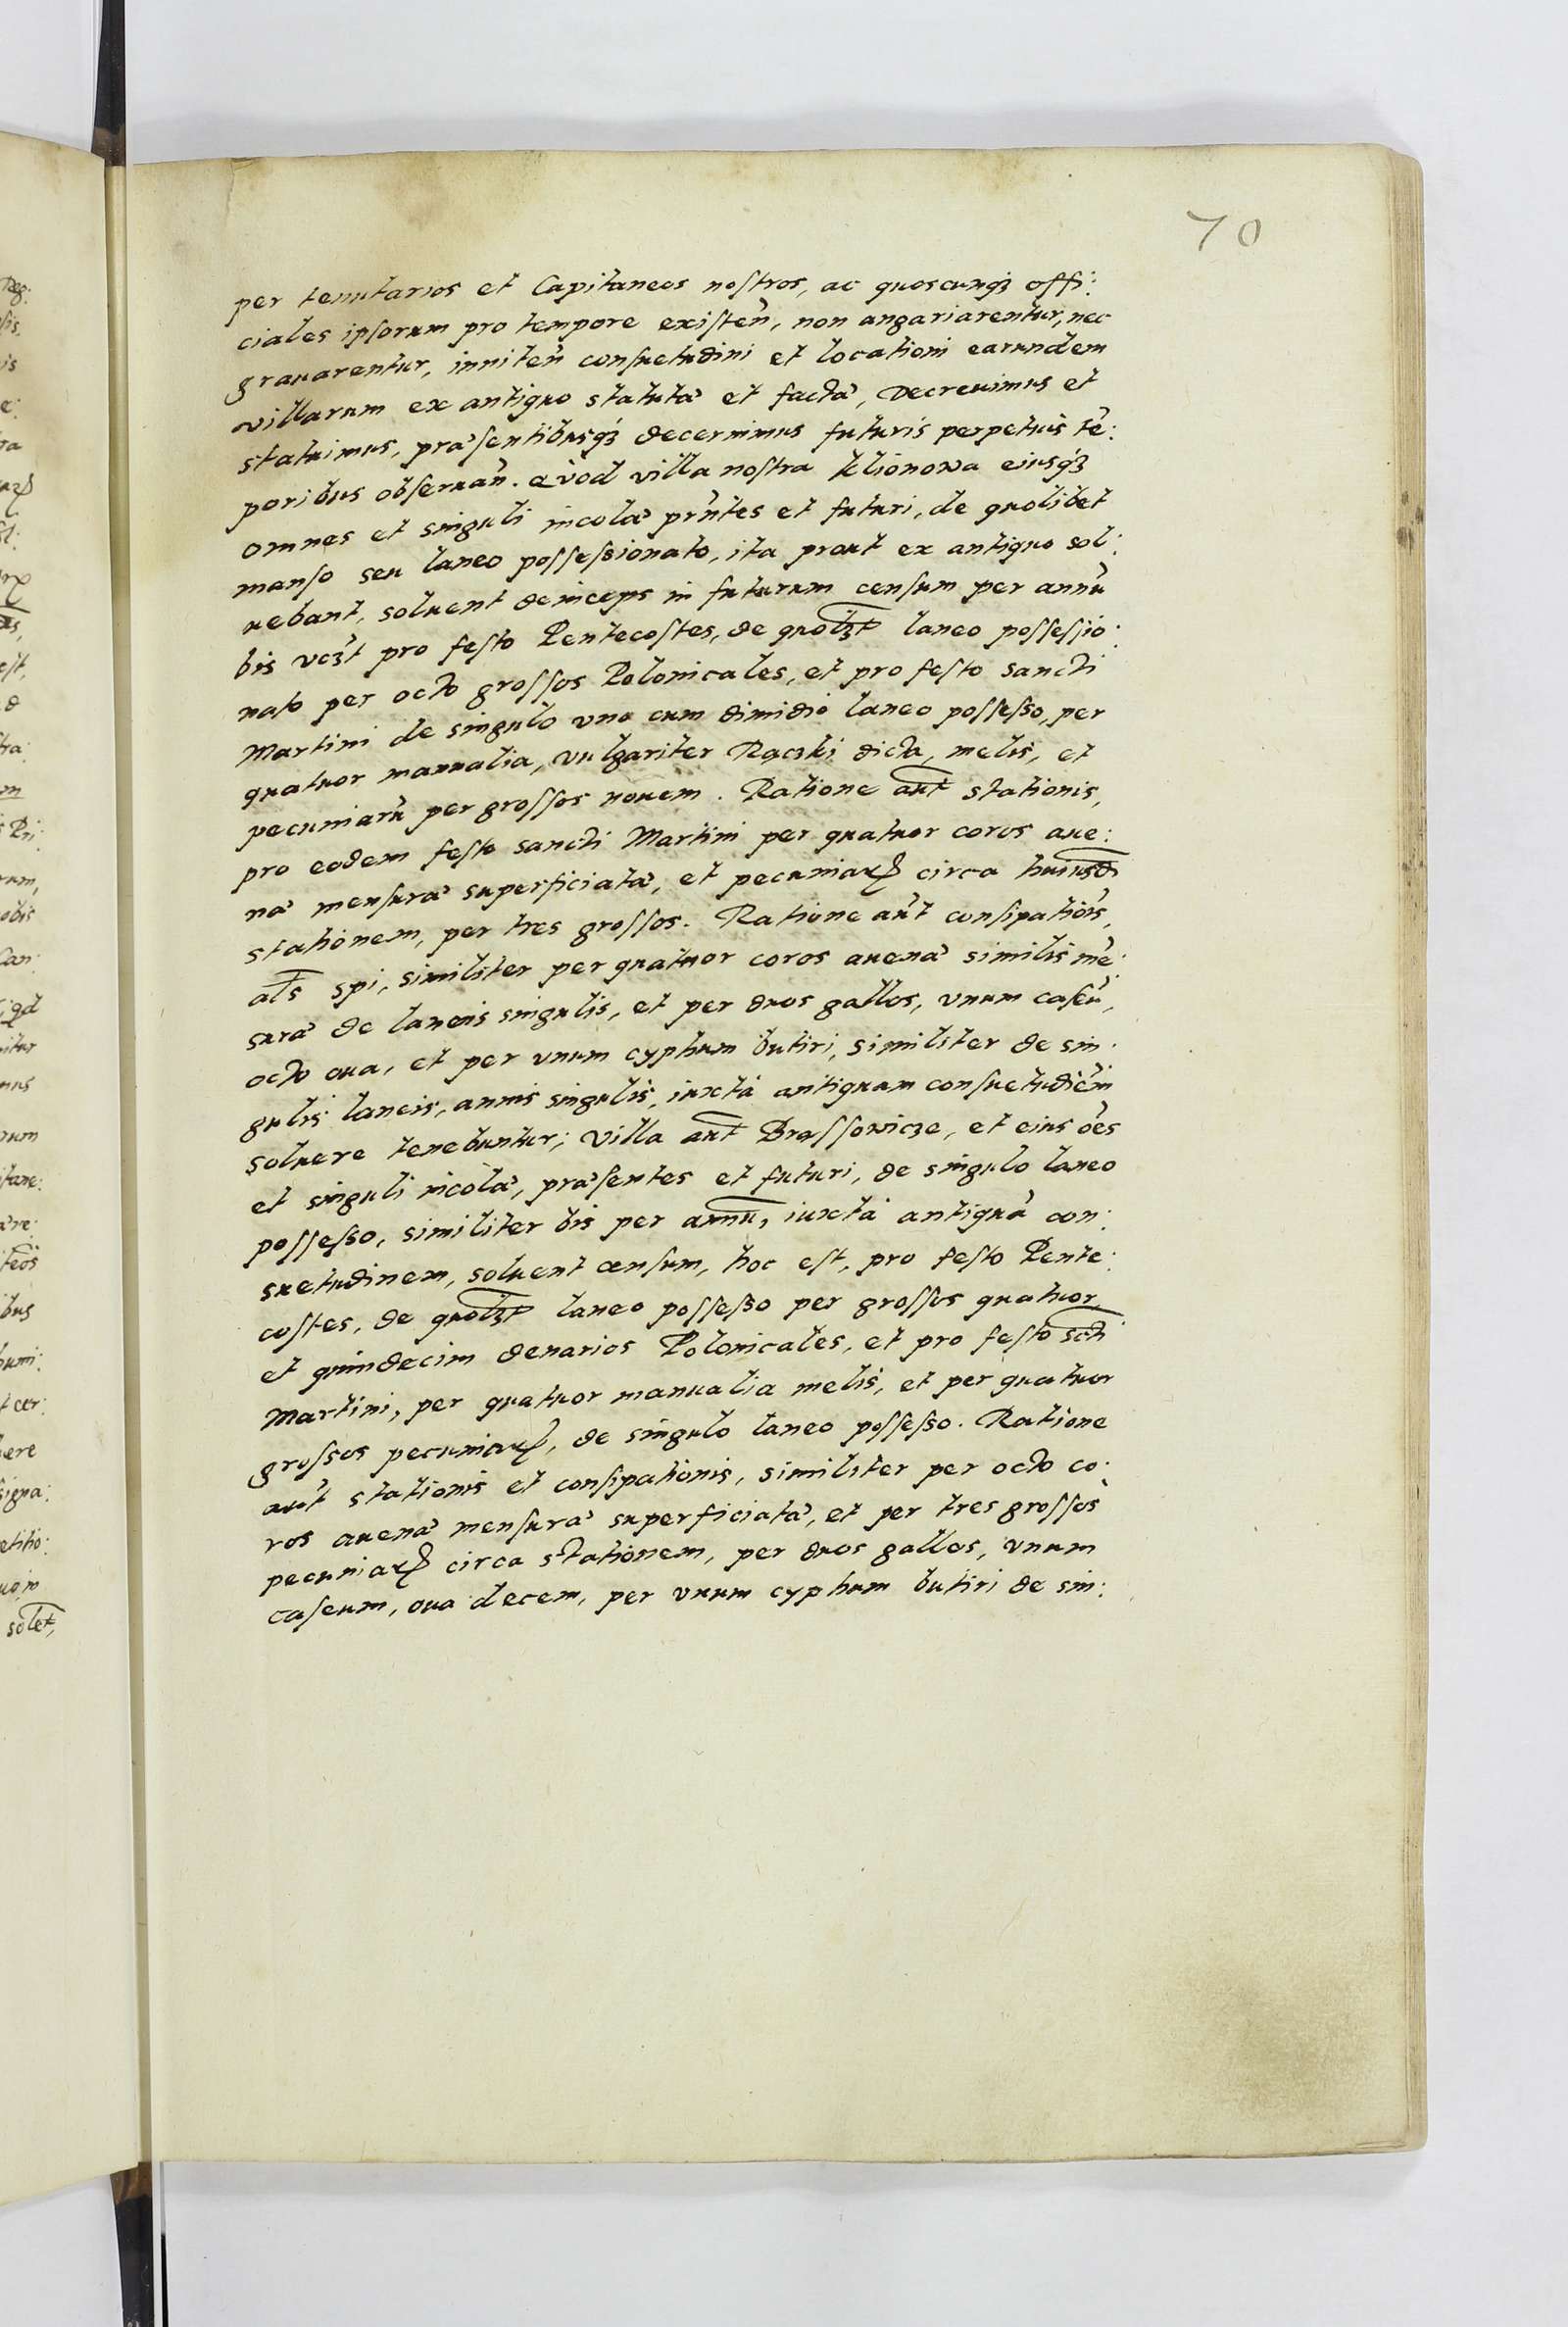 70
per tenutarios et Capitaneos nostros, ac quoscunqȝ offi:
ciales ipsorum pro tempore existen̄, non angariarentur, nec
grauarentur, inniten̄ consuetudini et locationi earundem
villarum ex antiquo statutæ et factæ, Decreuimus et
statuimus, præsentibusqȝ decernimus futuris perpetuis tē:
poribus obseruan̄. Quòd villa nostra Klionowa eiusqȝ
omnes et singuli incolæ pr̄ntes et futuri, de quolibet
manso seu laneo possessionato, ita prout ex antiquo sol:
uebant, soluent deinceps in futurum censum per annū
bis vcȝt pro festo Pentecostes, de quolȝt laneo possessio:
nato per octo grossos Polonicales, et pro festo sancti
Martini de singulo vno cum dimidio laneo possesso, per
quatuor manualia, vulgariter Rączki dicta, melis, et
pecuniarū per grossos nouem. Ratione aut̄ stationis,
pro eodem festo sancti Martini per quatuor coros aue:
næ mensuræ superficiatæ, et pecuniaꝝ circa huiusd̄
stationem, per tres grossos. Ratione aūt consipatiōis,
als̄ spi, similiter per quatuor coros auenæ similis mē:
suræ de laneis singulis, et per duos gallos, vnum caseū,
octo oua, et per vnum cyphum butiri, similiter de sin:
gulis laneis, annis singulis, iuxta antiquam consuetudiēm
soluere tenebuntur; villa aut̄ Brassowicze, et eius ōes
et singuli incolæ, præsentes et futuri, de singulo laneo
possesso, similiter bis per annū, iuxta antiquā con:
suetudinem, soluent censum, hoc est, pro festo Pente:
costes, de quolȝt laneo possesso per grossos quatuor,
et quindecim denarios Polonicales, et pro festo scti̅
Martini, per quatuor manualia melis, et per quatuor
grossos pecuniaꝝ, de singulo laneo possesso. Ratione
aūt stationis et consipationis, similiter per octo co:
ros auenæ mensuræ superficiatæ, et per tres grossos
pecuniaꝝ circa stationem, per duos gallos, vnum
caseum, oua decem, per vnum cyphum butiri de sin: